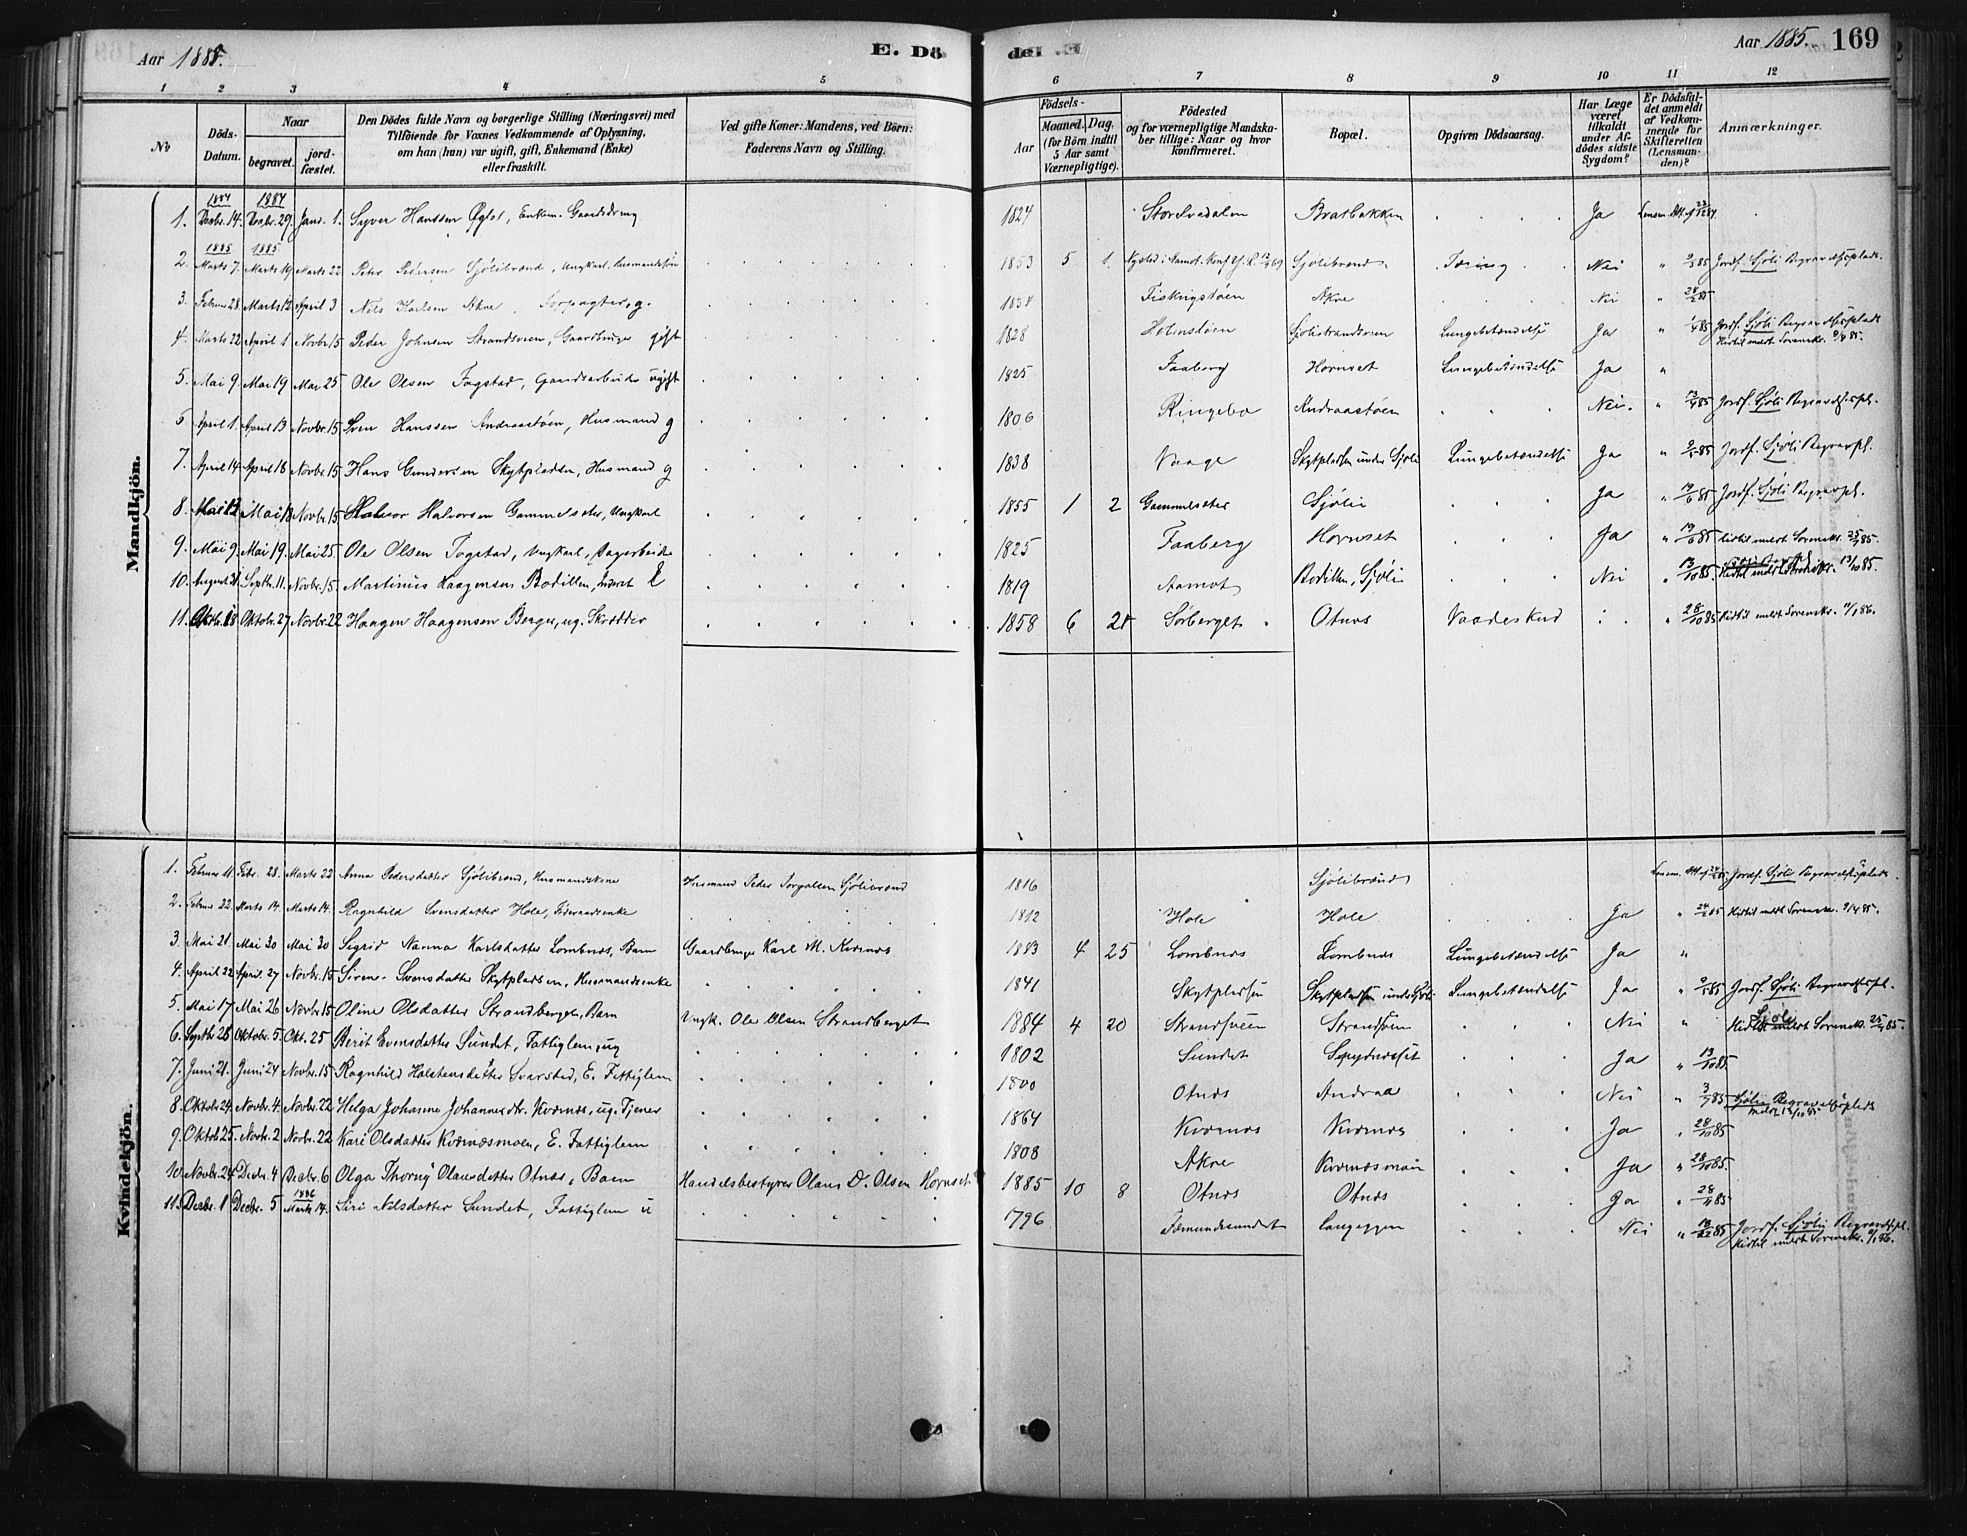 Aar 1885.
E. Dö
de. E.
Aar 1885.
169
1 2 3 4 5 6 7 8 9 10 11 12
No
Döds-Datum.
Naar
begravet.
jord-fæstet.
Den Dödes fulde Navn og borgerlige Stilling (Næringsvei) med
Tilföiende for Voxnes Vedkommende af Oplysning,
om han (hun) var ugift, gift, Enkemand (Enke)
eller fraskilt.
Ved gifte Koner: Mandens, ved Börn:
Faderens Navn og Stilling.
Födsels-
Aar
Maaned. Dag.
(for Börn indtil
5 Aar samt
Værnepligtige).
Födested
og for værnepligtige Mandska-
ber tillige: Naar og hvor
konfirmeret.
Bopæl.
Opgiven Dödsaarsag.
Har Læge
været
tilkaldt
under Af-
dödes sidste
Sygdom?
Er Dödsfal-
det anmeldt
af Vedkom-
mende for
Skifteretten
(Lensman-
den)?
Anmærkninger.
Mandkjön.
1884 1884
1. Decbr. 14. Decbr. 29. Janr. 1. Syver Hanssen Øglot, Enkem. Gaardbrug 1824 Storelvedalen Bratbakken Ja Lensm. Att. af 22/12 84.
1885 1885
2. Marts 7. Marts 19 Marts 22 Peter Pedersen Sjölibrænd, Ungkarl, Husmandssön 1853 5 1. Sjölibrænd Tæring Nei " 9/3 85 Jordf. Sjöli Begravelsesplads.
3. Februar 28. Marts 12 April 3 Nils Karlsen Akre g. 1834 Fiskvigstöen Akre Nei " 24/2 85
4. Marts 22 April 1 Novbr. 15 Peder Johnsen Strandsveen, Gaardbruger gift 1828 Holmstöen Sjölistrandsveen Lungebetændelse Ja " 1/4 85 Jordf. Sjöli Begravelsesplads
Kistil meldt Sorenskr. 9/4 85.
5. Mai 9. Mai 19 Mai 25 Ole Olsen Fogstad, Gaardsarbeider ugift 1825 Faaberg Hornset Lungebetændelse Ja "
6 April 1. April 13 Novbr. 15 Sven Hanssen Andraastöen, Husmand g 1806 Ringebo Andraastöen Nei. " 12/4 85 Jordf. Sjöli Begravelsespl.
7. April 14 April 18 Novbr. 15 Hans Gundersen Skytpladsen, Husmand g 1838 Vaage Skytpladsen under Sjöli Lungebetændelse Ja " 9/5 85 Jordf. Sjöli Begravpl.
8. Mai 12 Mai 18 Novbr. 15 Halvor Halvorsen Gammelsæter, Ungkarl 1855 1 2 Gammelsæter Sjölie Ja " 19/6 85 Jordf. Sjöli Begravpl.
9. Mai 9. Mai 19. Mai 25. Ole Olsen Fogstad, Ungkarl, Dagarbeider 1825 Faaberg Hornset Ja " 19/6 85 Kistil meldt Sorenskr. 25/7 85.
10. August 31. Septb. 11. Novbr. 15. Martinus Haagensen Bodillen, E 1819 Aamot Bodillen, Sjöli Nei " 13/10 85. Kistil meldt Sorenskr. 13/10 85.
11. Oktbr. 18 Oktobr. 27 Novbr. 22 Haagen Haagensen Berger, ug. Skrædder 1858 6 21 Sorberget Otnes Vaadeskud " 28/10 85 Kistil meldt Sorenskr. 4/1 86.
Kvindekjön.
1. Februar 11. Febr. 28. Marts 22 Anna Pedersdatter Sjölibrænd, Husmandskone Husmand Peder Torgalsen Sjölibrænd 1816 Sjölibrænd Lensm. Att. af 24/2 85 Jordf. Sjöli Begravelsesplads.
2. Februar 22. Marts 14. Marts 14. Ragnhild Svensdatter Hole, Föderaadsenke 1812 Hole Hole Ja " 24/2 85 Kistil meldt Sorenskr. 9/4 85.
3. Mai 21. Mai 30 Mai 30 Sigrid Nanna Karlsdatter Lombnæs, Barn Gaardbruger Karl M. Kværnæs 1883 4 25 Lombnæs Lombnæs Lungebetændelse Ja "
4. April 22 April. 27 Novbr. 15 Siren Svensdatter Skytpladsen, Husmandsenke 1841 Skytpladsen Skytpladsen under Sjöli Lungebetændelse Ja " 9/5 85 Jordf. Sjöli Begravelsespl.
5. Mai 17. Mai 26 Novbr. 15 Oline Olsdatter Strandberget, Barn Ungk. Ole Olsen Strandberget 1884 4 20 Strandsveen Strandsveen Nei " Sjöli
Kistil meldt Sorenskr. 25/7 85.
6. Septbr 28. Oktobr. 5. Okt. 25 Berit Evensdatter Sundet, Fattiglem, ug 1802 Sundet Ja " 13/10 85.
7. Juni 21. Juni 24 Novbr. 15 Ragnhild Holstensdatter Svarstad, E. Fattiglem 1800 Otnes Andraa Nei " 3/7 85 Sjöli Begravelsesplads
Meldt 13/10 85
8. Oktobr. 24. Novbr. 4. Novbr. 22 Helga Johanne Johannesdtr. Kværnæs, ug. Tjener 1864 Kværnæs Kværnæs Ja " 28/10 85
9. Oktob. 25. Novbr. 2 Novbr. 22 Kari Olsdatter Kværnæsmoen, E. Fattiglem 1808 Akre Kværnæsmoen Ja " 28/10 85.
10. Novbr. 24 Decbr. 4 Decbr. 6 Olga Thorny Olausdatter Otnæs, Barn Handelsbestyrer Olaus O. Olsen Hornset 1885 10 8 Otnæs Otnæs Ja " 28/11 85
11. Decbr. 1 Decbr. 5 1886 Marts 14. Siri Nilsdatter Sundet, Fattiglem u 1796 Fæmundssundet Langeggen Nei " 19/12 85 Jordf. Sjöli Begravelsespl.
Kistil meldt Sorenskr. 9/1 86.